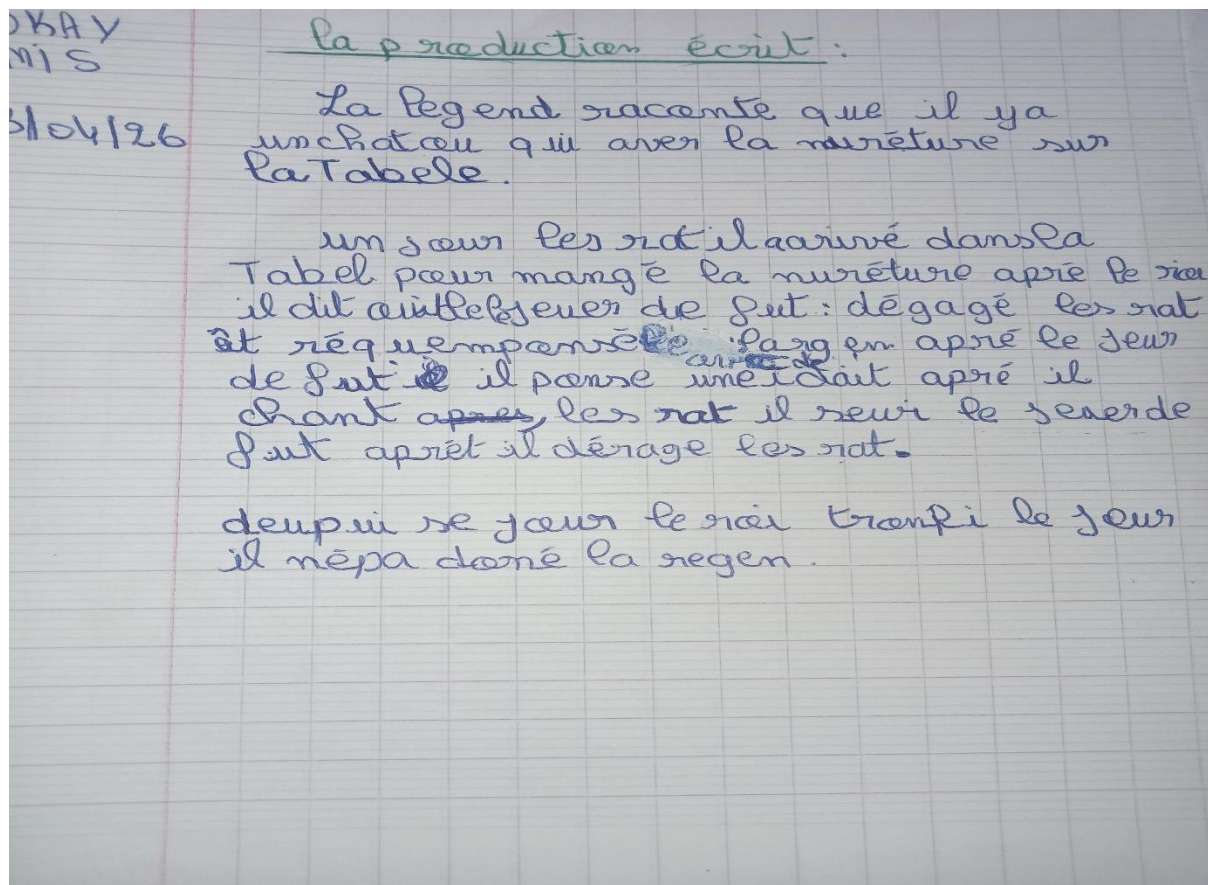 OKAY
MIS
3/04/26
la production écrit :
La legend raconte que il ya
un chatou qui aver la nuréture sur
la Tabele.
un jour les rat il aarivé dans la
Tabel pour mangé la nuréture aprie le roi
il dit le jeuer de flut : dégagé les rat
ét réquemponsé l'argen apré le jeur
de flut il ponse une idait apré il
chant les rat il seui le jeuer de
flut aprét il dérage les rat.
deupui se jour le roi trompi le jeur
il népa doné la regen.